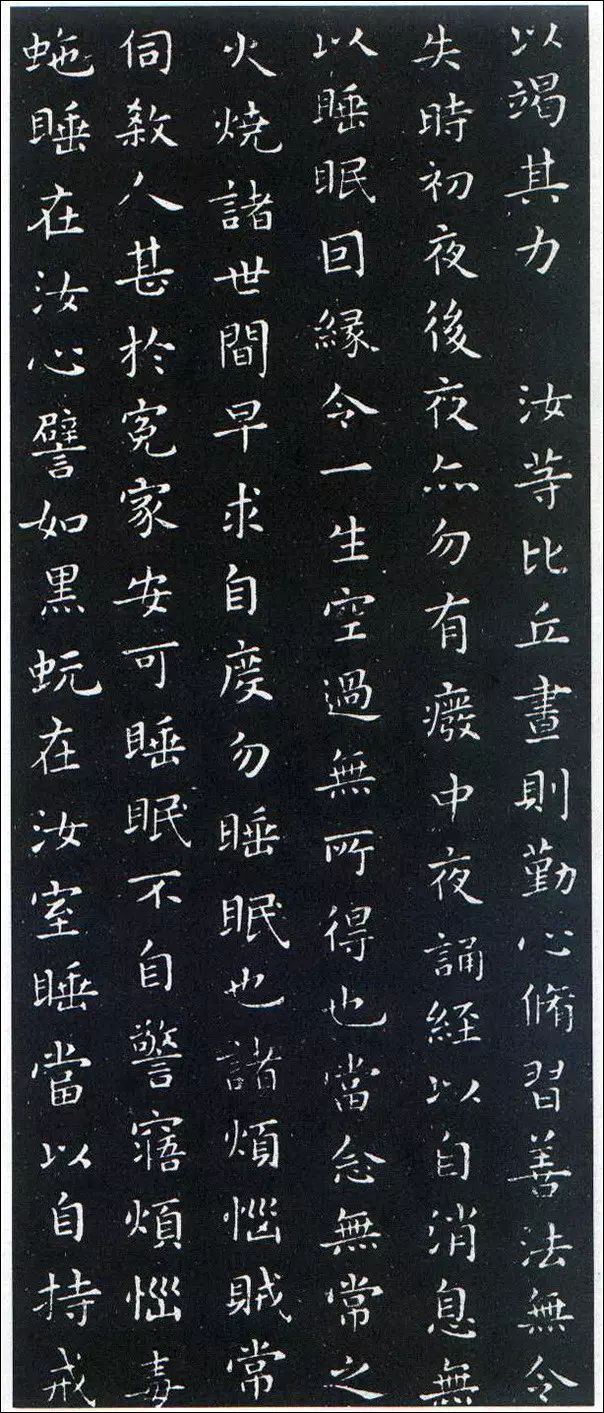 以竭其力　汝等比丘晝則勤心脩習善法無令
失時初夜後夜亦勿有癈中夜誦經以自消息無
以睡眠因緣令一生空過無所得也當念無常之
火燒諸世間早求自度勿睡眠也諸煩惱賊常
伺殺人甚於寃家安可睡眠不自警寤煩惱毒
虵睡在汝心譬如黑蚖在汝室睡當以自持戒